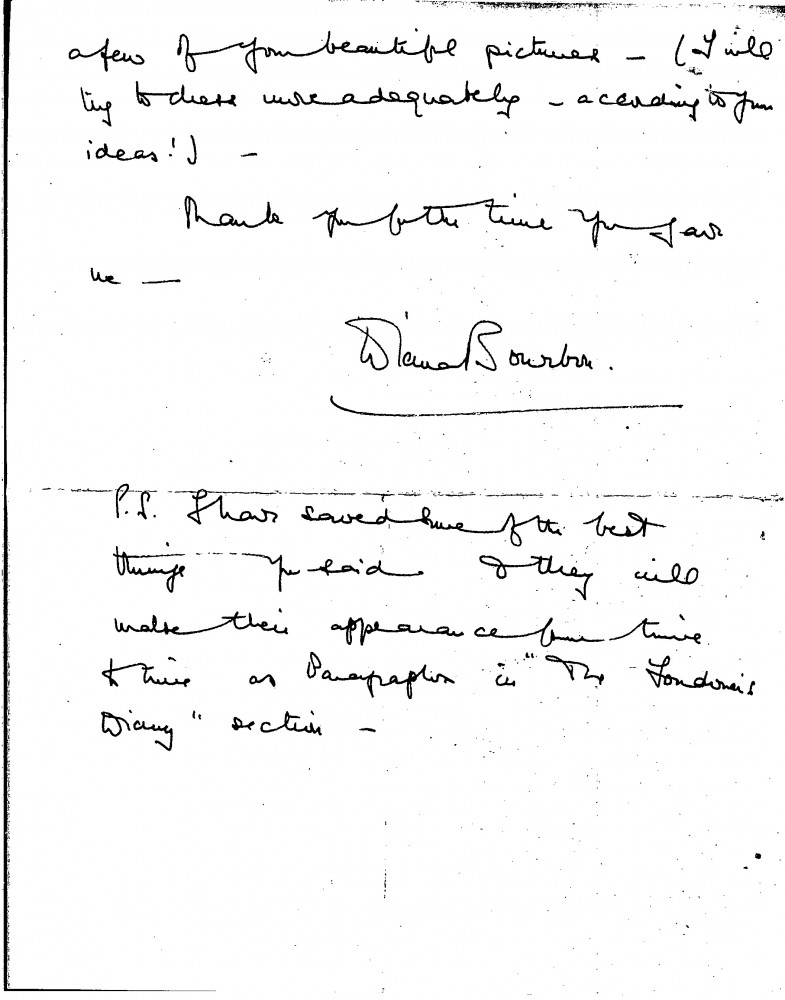 a few of your beautiful pictures — (I will
try to dress more adequately — according to your
ideas!) —
Thank you for the time you gave
me —
Diana Bourbon.
P.S. I have saved some of the best
things you said & they will
make their appearance from time
to time as Paragraphs in "The Londoner's
Diary" section —